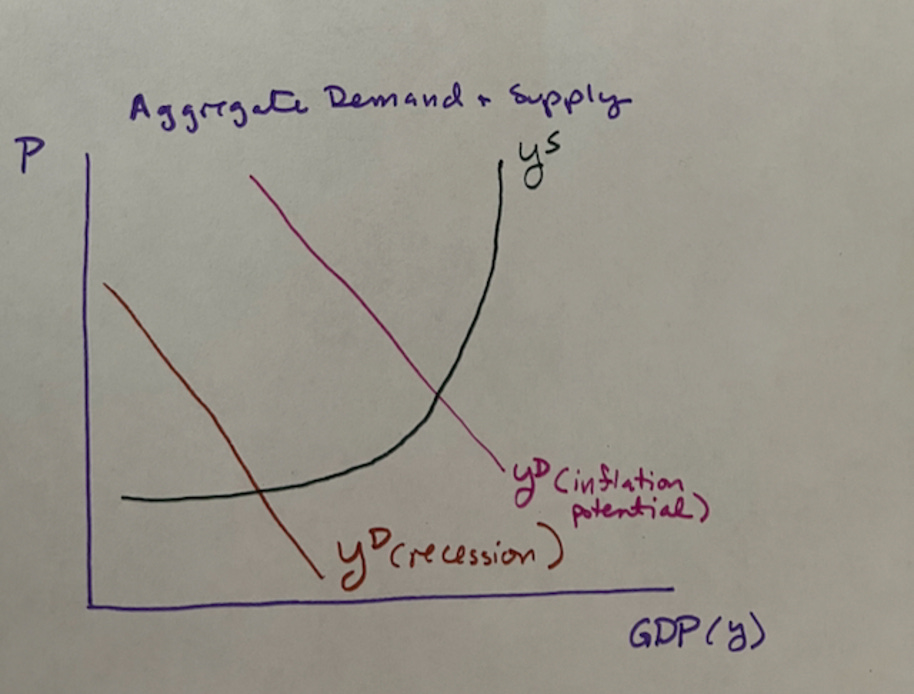 Aggregate Demand + Supply
P
yS
yD (inflation
potential)
yD (recession)
GDP (y)